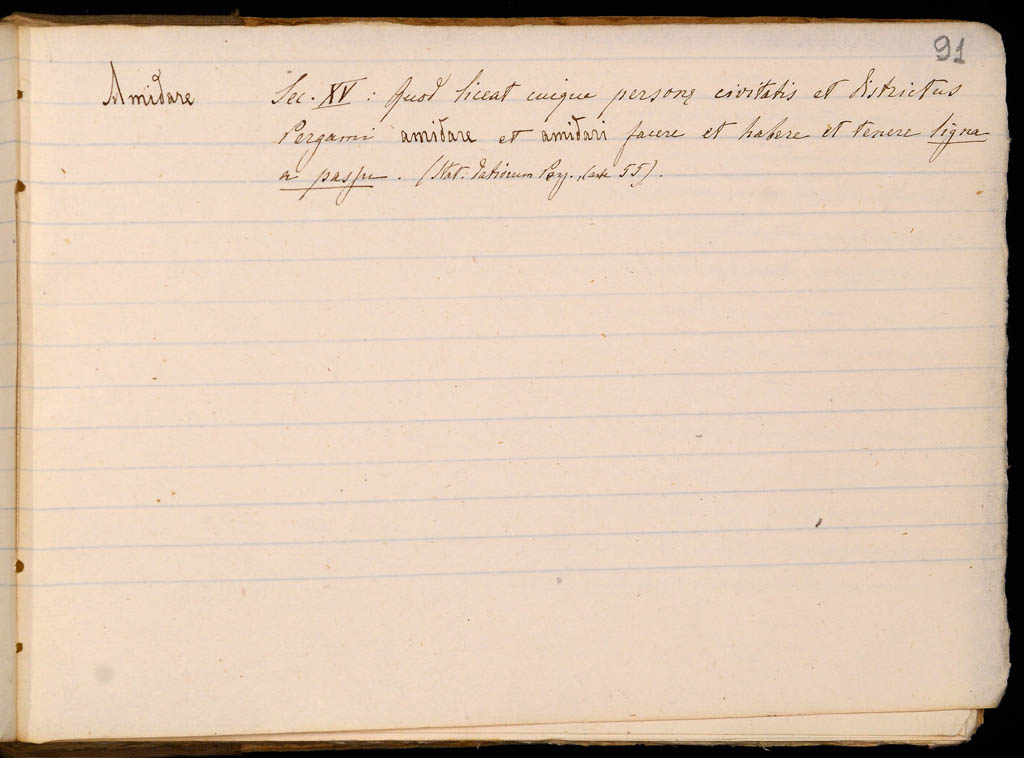 91
Amidare Sec. XV : Quod liceat cuique personę civitatis et districtus
Pergami amidare et amidari facere et habere et tenere ligna
a passu . (Stat. datiorum Perg., carte 55).